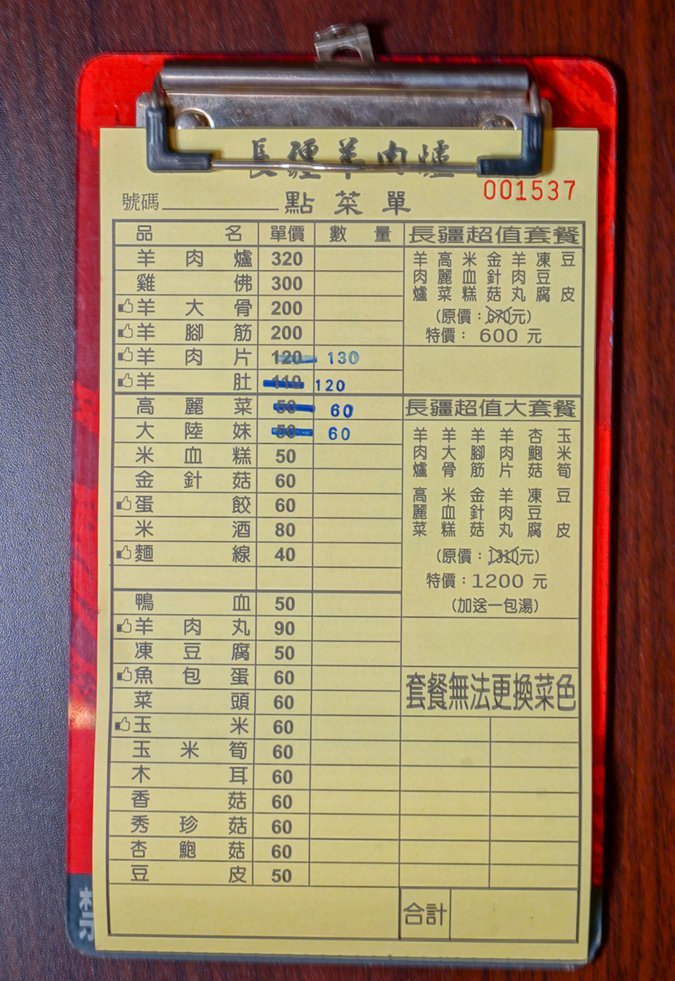 長疆羊肉爐
001537
號碼
點菜單
品名 單價 數量
羊肉爐 320
雞佛 300
羊大骨 200
羊腳筋 200
羊肉片 120 130
羊肚 110 120
高麗菜 50 60
大陸妹 50 60
米血糕 50
金針菇 60
蛋餃 60
米酒 80
麵線 40
鴨血 50
羊肉丸 90
凍豆腐 50
魚包蛋 60
菜頭 60
玉米 60
玉米筍 60
木耳 60
香菇 60
秀珍菇 60
杏鮑菇 60
豆皮 50
長疆超值套餐
羊肉爐
高麗菜
米血糕
金針菇
羊肉丸
凍豆腐
豆皮
(原價：670元)
特價：600元
長疆超值大套餐
羊肉爐
羊大骨
羊腳筋
羊肉片
杏鮑菇
玉米筍
高麗菜
米血糕
金針菇
羊肉丸
凍豆腐
豆皮
(原價：1310元)
特價：1200元
(加送一包湯)
套餐無法更換菜色
合計